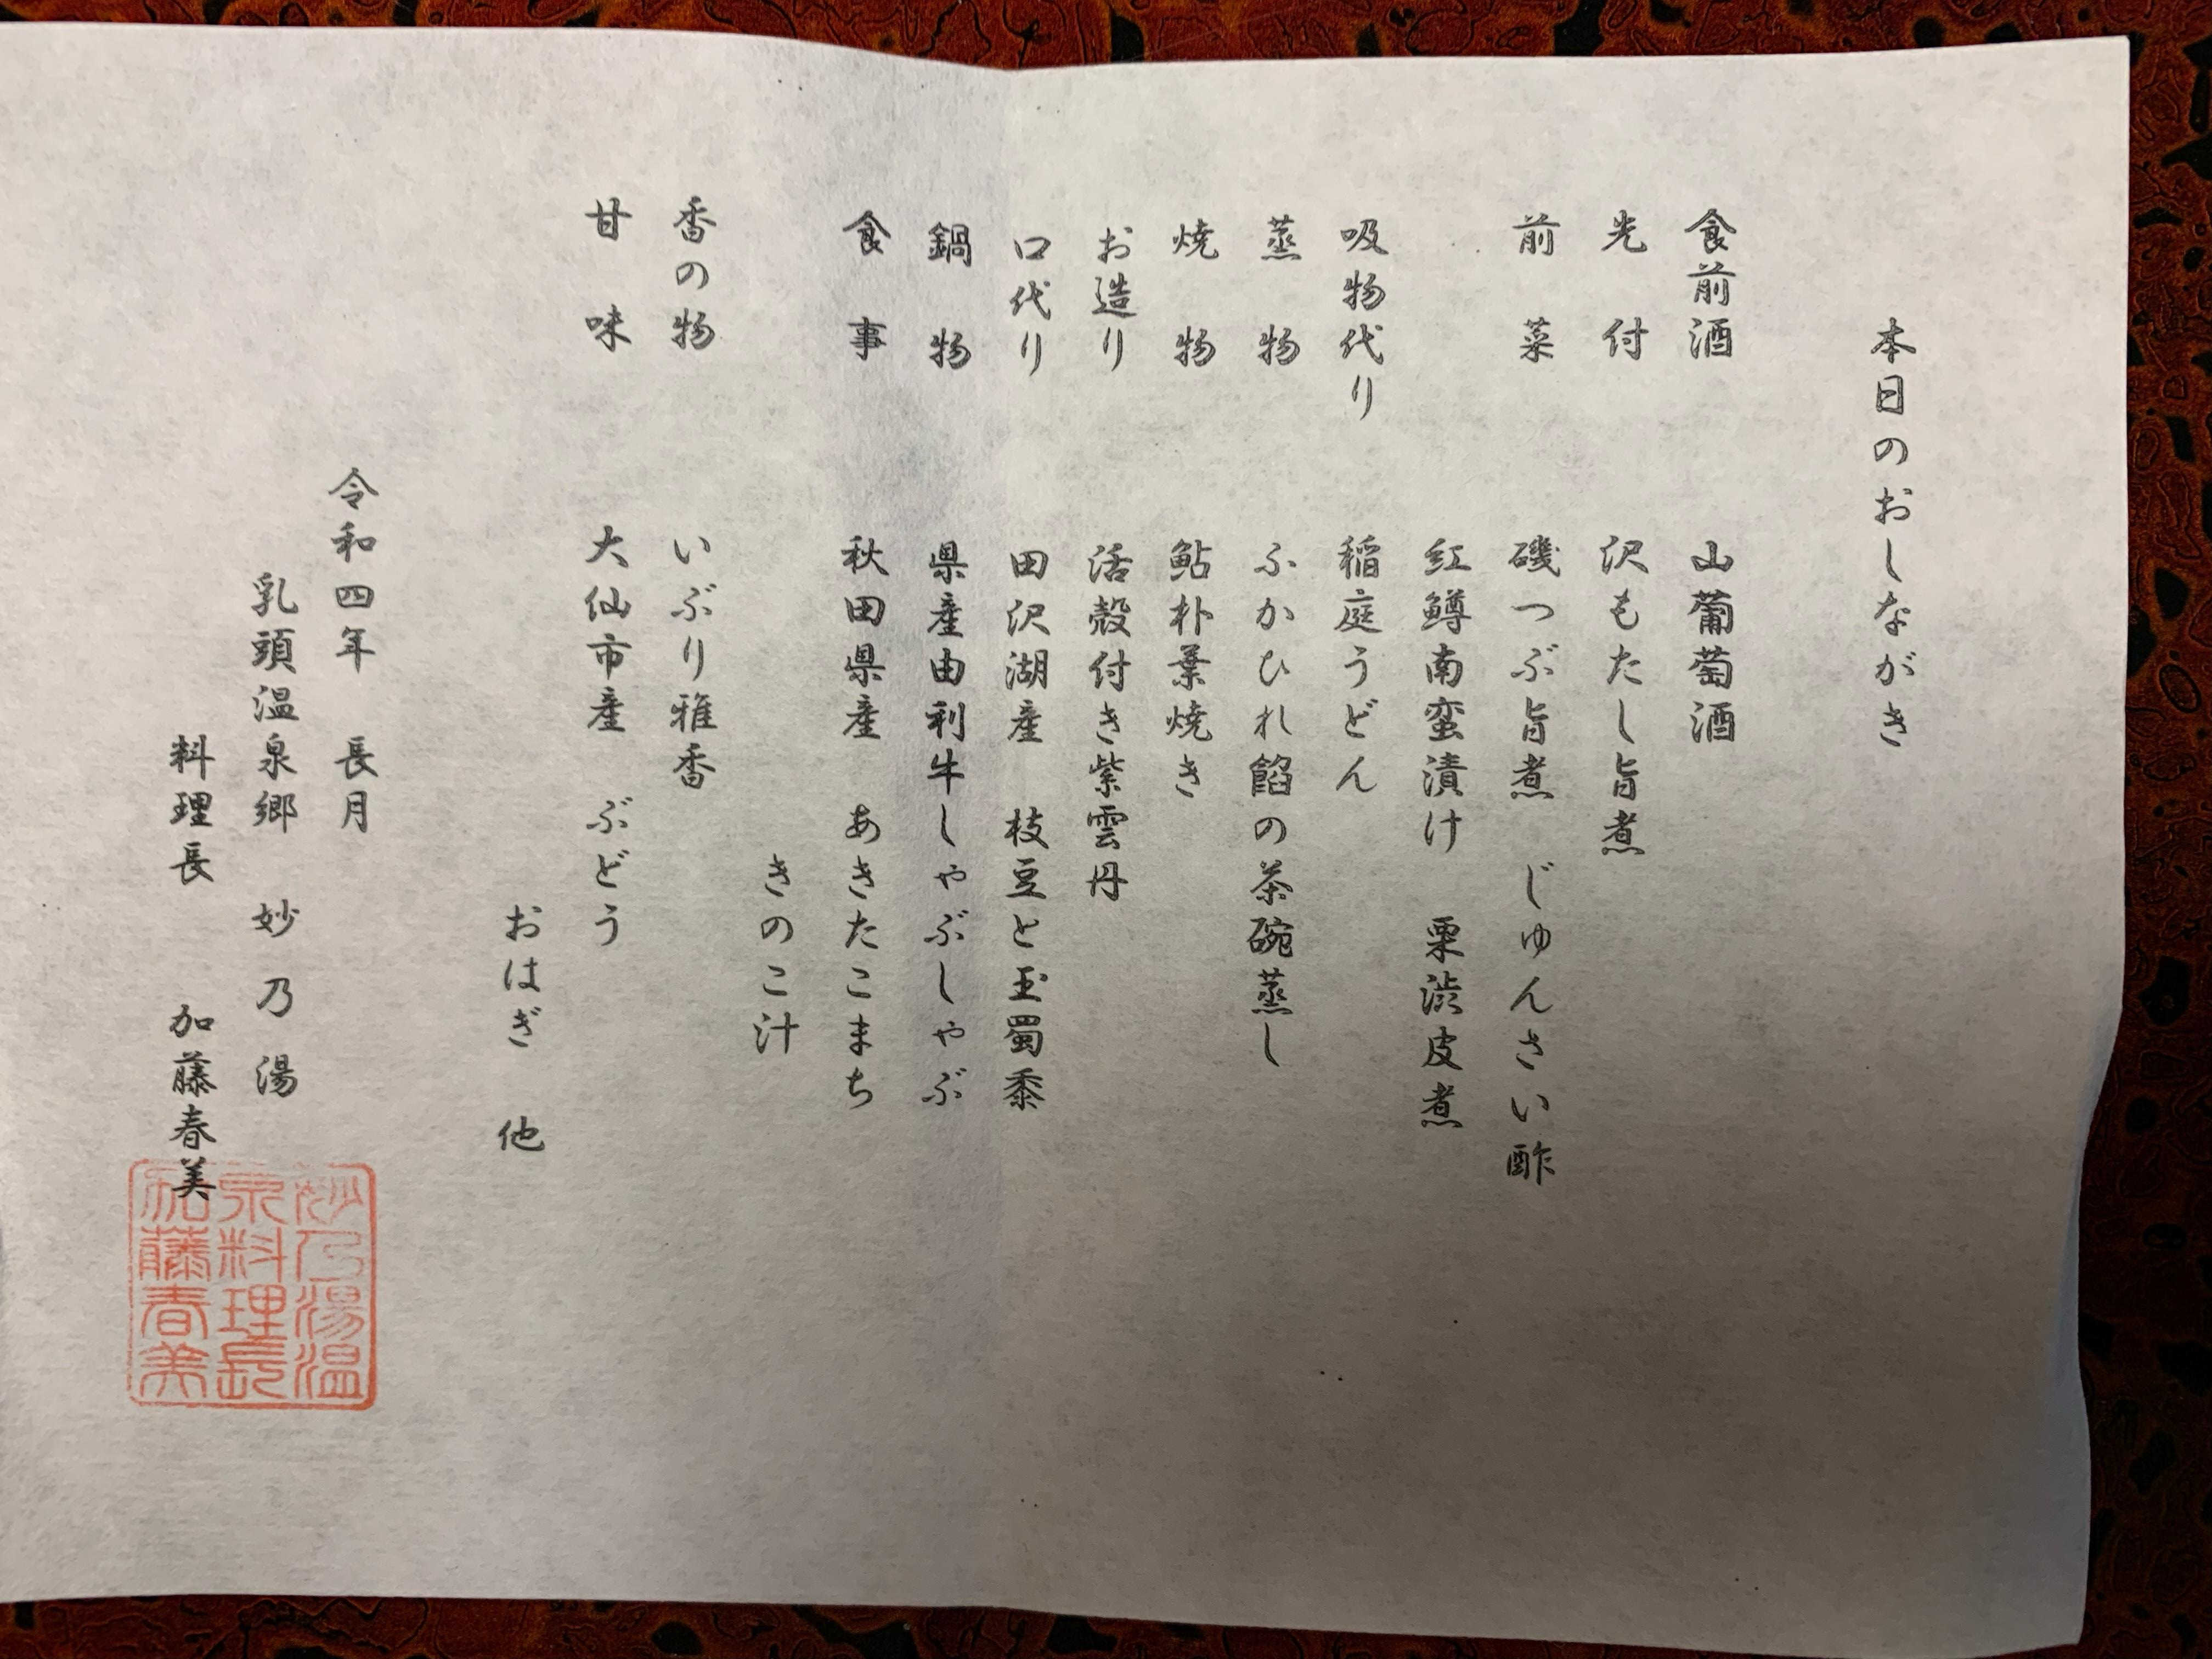 本日のおしながき
食前酒　山葡萄酒
先付　沢もたし旨煮
前菜　磯つぶ旨煮　じゅんさい酢
紅鱒南蛮漬け　栗渋皮煮
吸物代り　稲庭うどん
蒸物　ふかひれ餡の茶碗蒸し
焼物　鮎朴葉焼き
お造り　活殻付き紫雲丹
口代り　田沢湖産　枝豆と玉蜀黍
鍋物　県産由利牛しゃぶしゃぶ
食事　秋田県産　あきたこまち
きのこ汁
香の物　いぶり雅香
甘味　大仙市産　ぶどう
おはぎ　他
令和四年　長月
乳頭温泉郷　妙乃湯
料理長　加藤春美
妙乃湯温
泉料理長
加藤春美